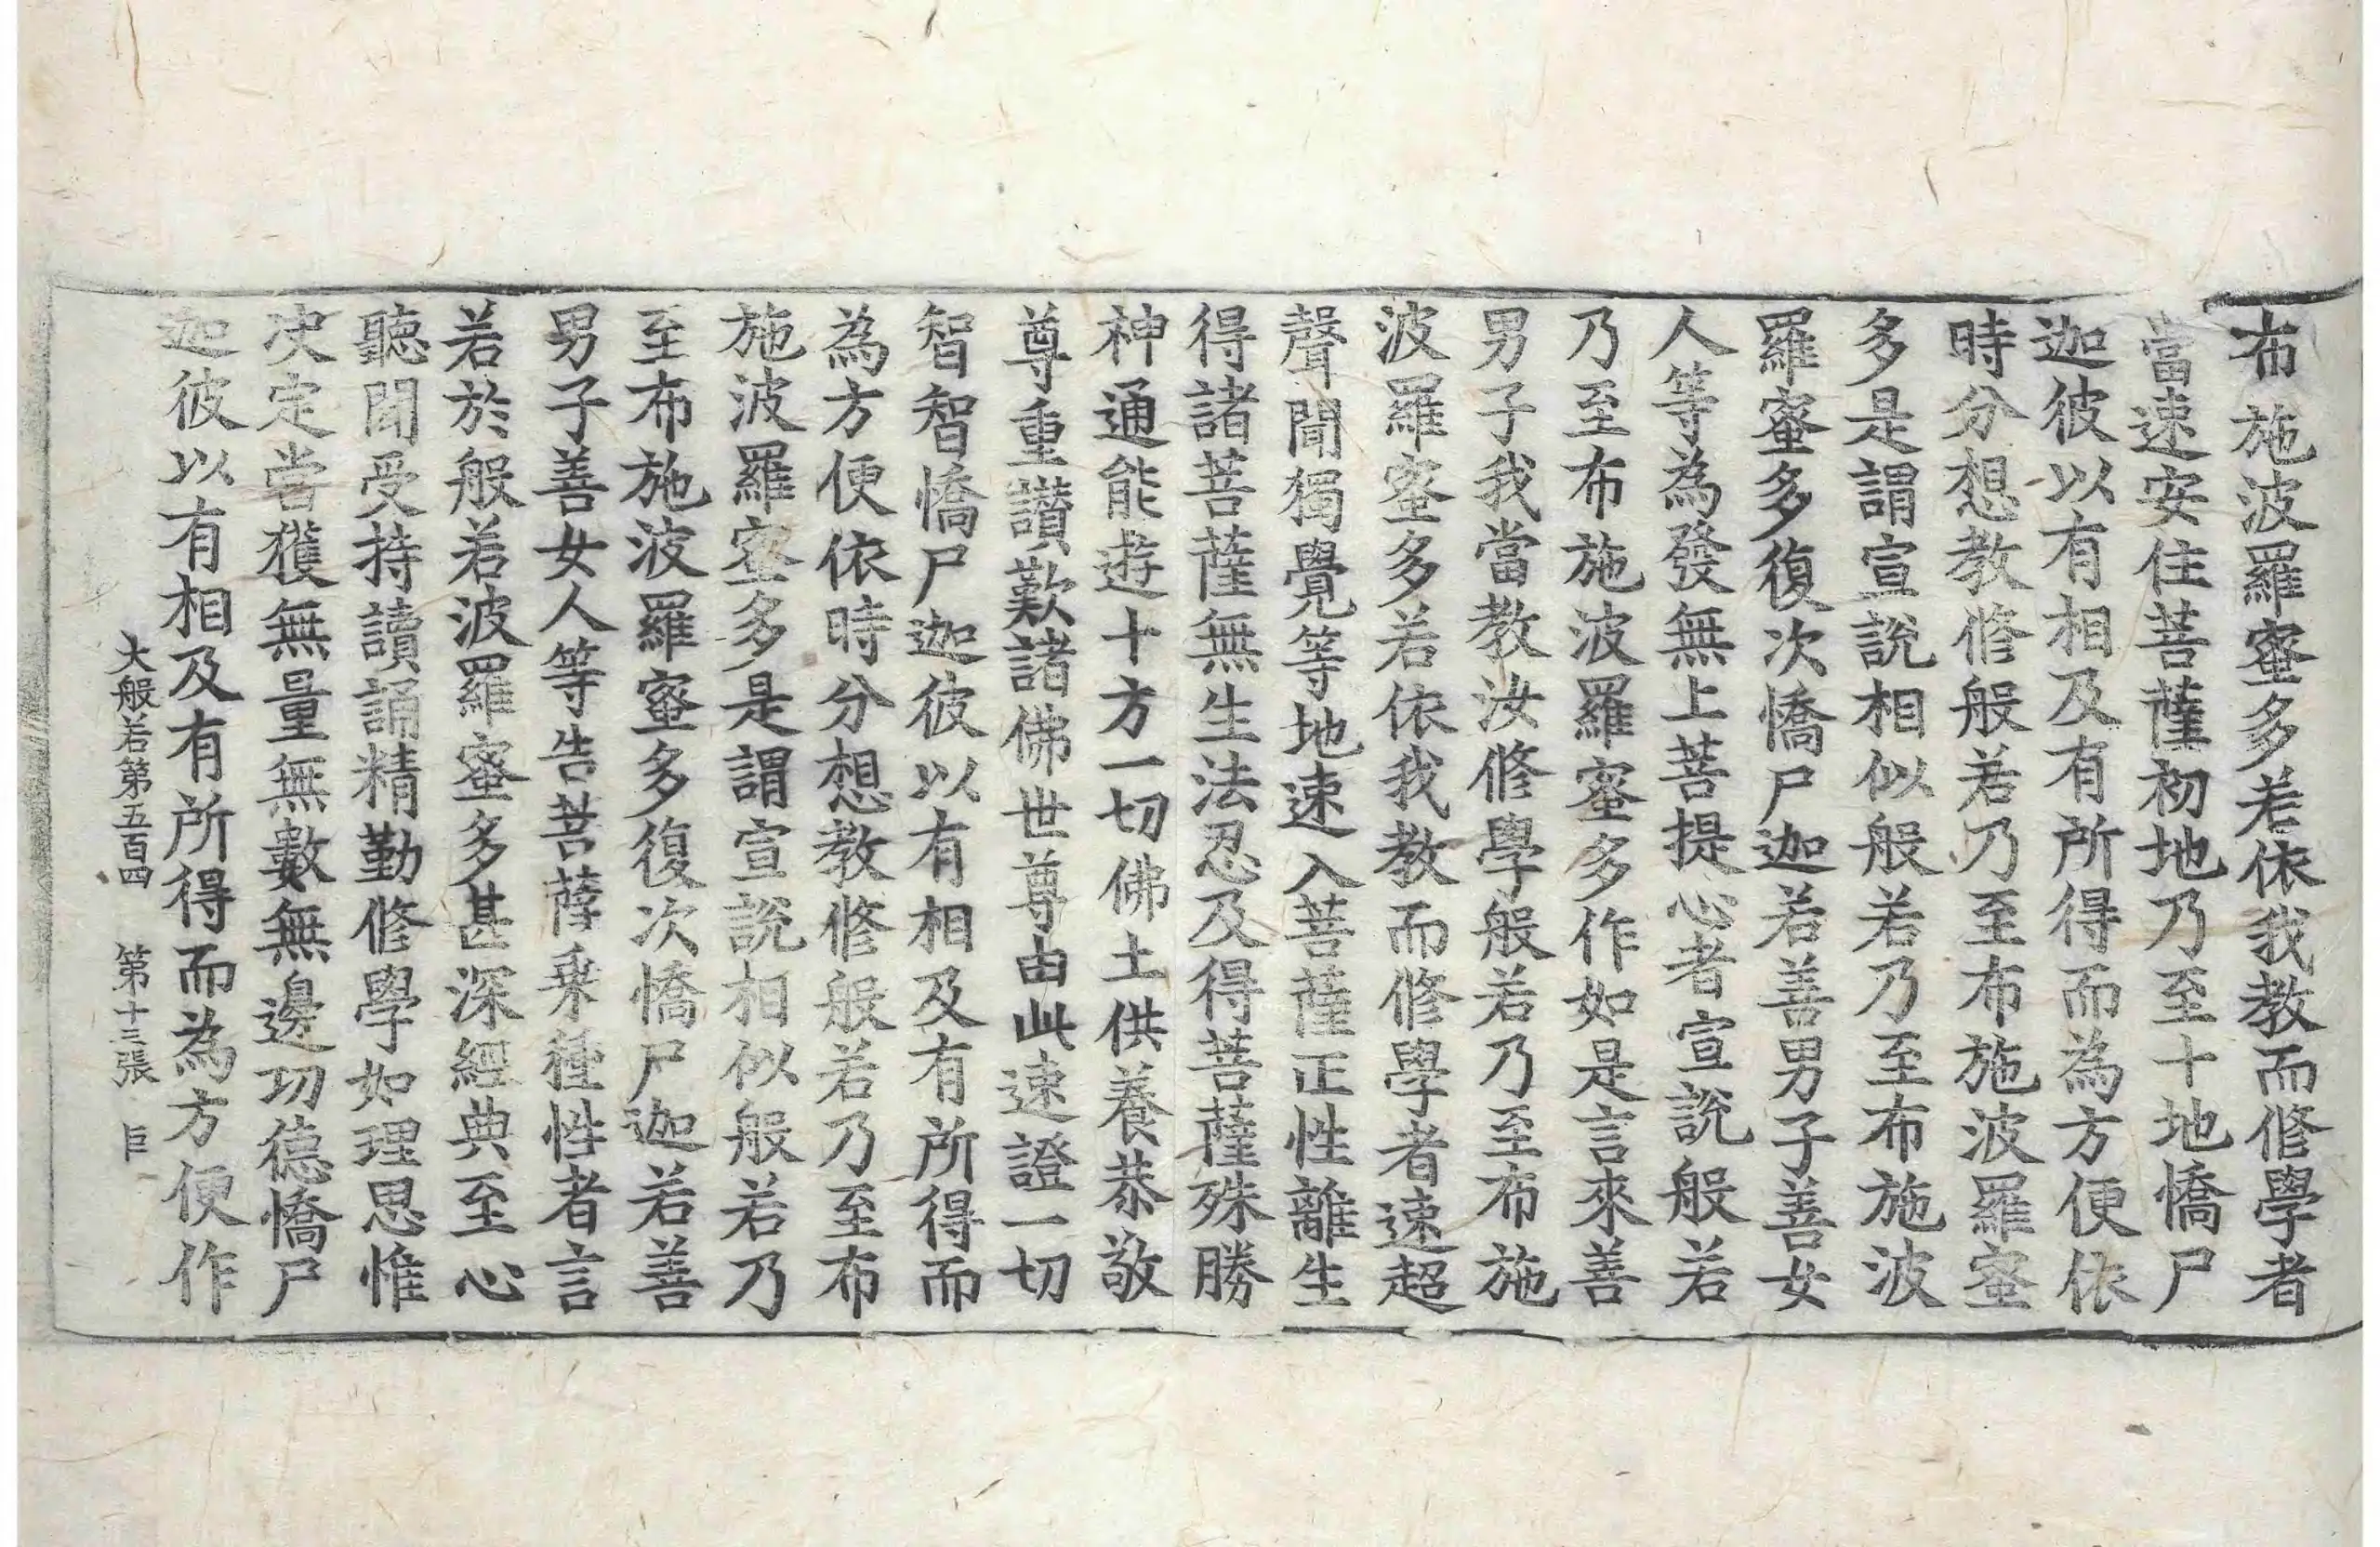 布施波羅蜜多若依我教而修學者
當速安住菩薩初地乃至十地憍尸
迦彼以有相及有所得而為方便依
時分想教修般若乃至布施波羅蜜
多是謂宣說相似般若乃至布施波
羅蜜多復次憍尸迦若善男子善女
人等為發無上菩提心者宣說般若
乃至布施波羅蜜多作如是言來善
男子我當教汝修學般若乃至布施
波羅蜜多若依我教而修學者速超
聲聞獨覺等地速入菩薩正性離生
得諸菩薩無生法忍及得菩薩殊勝
神通能遊十方一切佛土供養恭敬
尊重讃歎諸佛世尊由此速證一切
智智憍尸迦彼以有相及有所得而
為方便依時分想教修般若乃至布
施波羅蜜多是謂宣說相似般若乃
至布施波羅蜜多復次憍尸迦若善
男子善女人等告菩薩乘種性者言
若於般若波羅蜜多甚深經典至心
聽聞受持讀誦精勤修學如理思惟
决定當獲無量無數無邊功德憍尸
迦彼以有相及有所得而為方便作
大般若第五百四 第十三張 巨